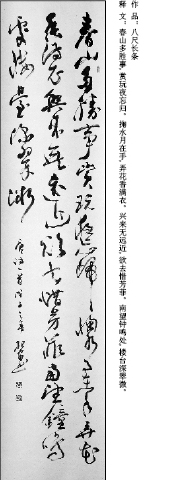 作 品：八尺长条
释 文：春山多胜事，赏玩夜忘归。掬水月在手，弄花香满衣。兴来无远近，欲去惜芳菲。南望钟鸣处，楼台深翠微。
春山多勝事賞玩夜忘歸掬水月在手弄花
香滿衣興來無遠近欲去惜芳菲南望鐘鳴
處樓臺深翠微
唐詩一首